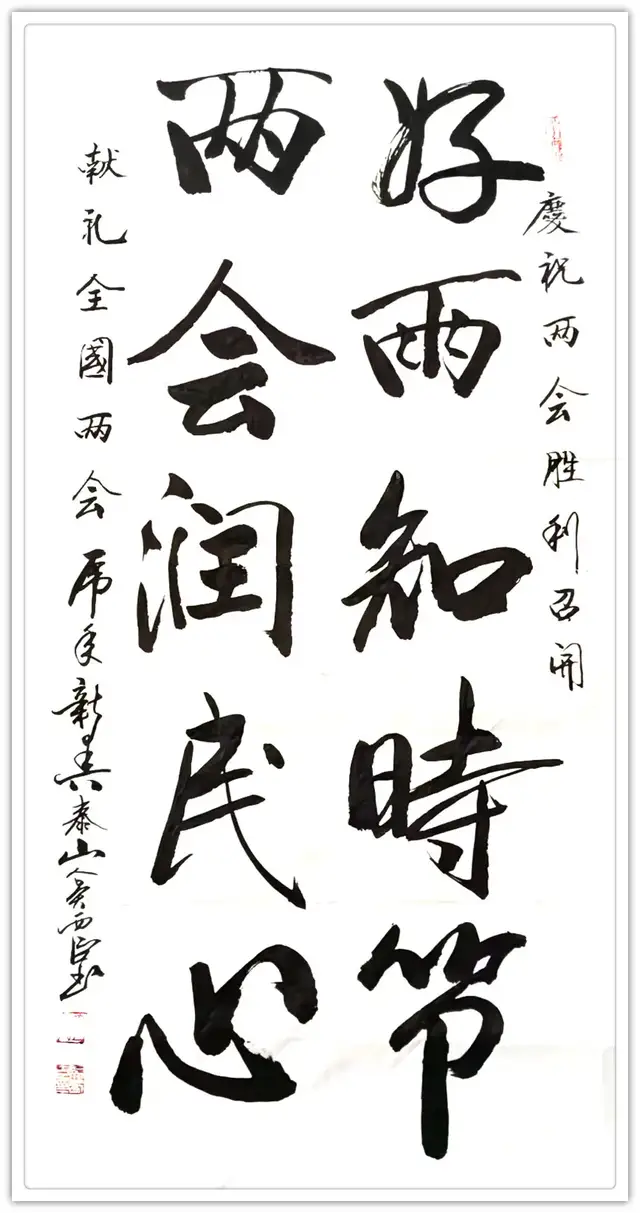 慶祝两会胜利召开
好雨知時节
两会润民心
献礼全國两会虎年新春泰山